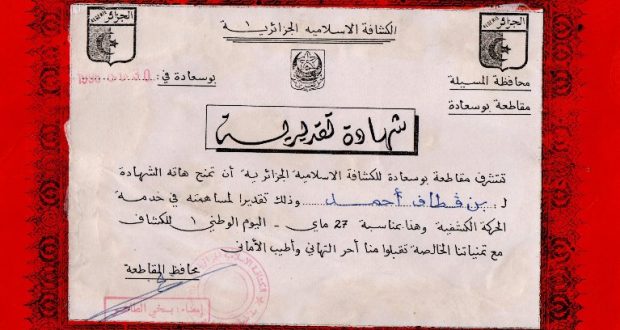 الكشافة الاسلامية الجزائرية
الجزائر
الجزائر
محافظة المسيلة
مقاطعة بوسعادة
بوسعادة في:
شهادة تقديرية
تتشرف مقاطعة بوسعادة للكشافة الاسلامية الجزائرية أن تمنح هاته الشهادة
لـ بن قطاف أحمد وذلك تقديرا لمساهمته في خدمة
الحركة الكشفية وهذا بمناسبة 27 ماي - اليوم الوطني للكشاف
مع تمنياتنا الخالصة تقبلوا منا أحر التهاني وأطيب الأماني
محافظ المقاطعة
إمضاء: يسخي